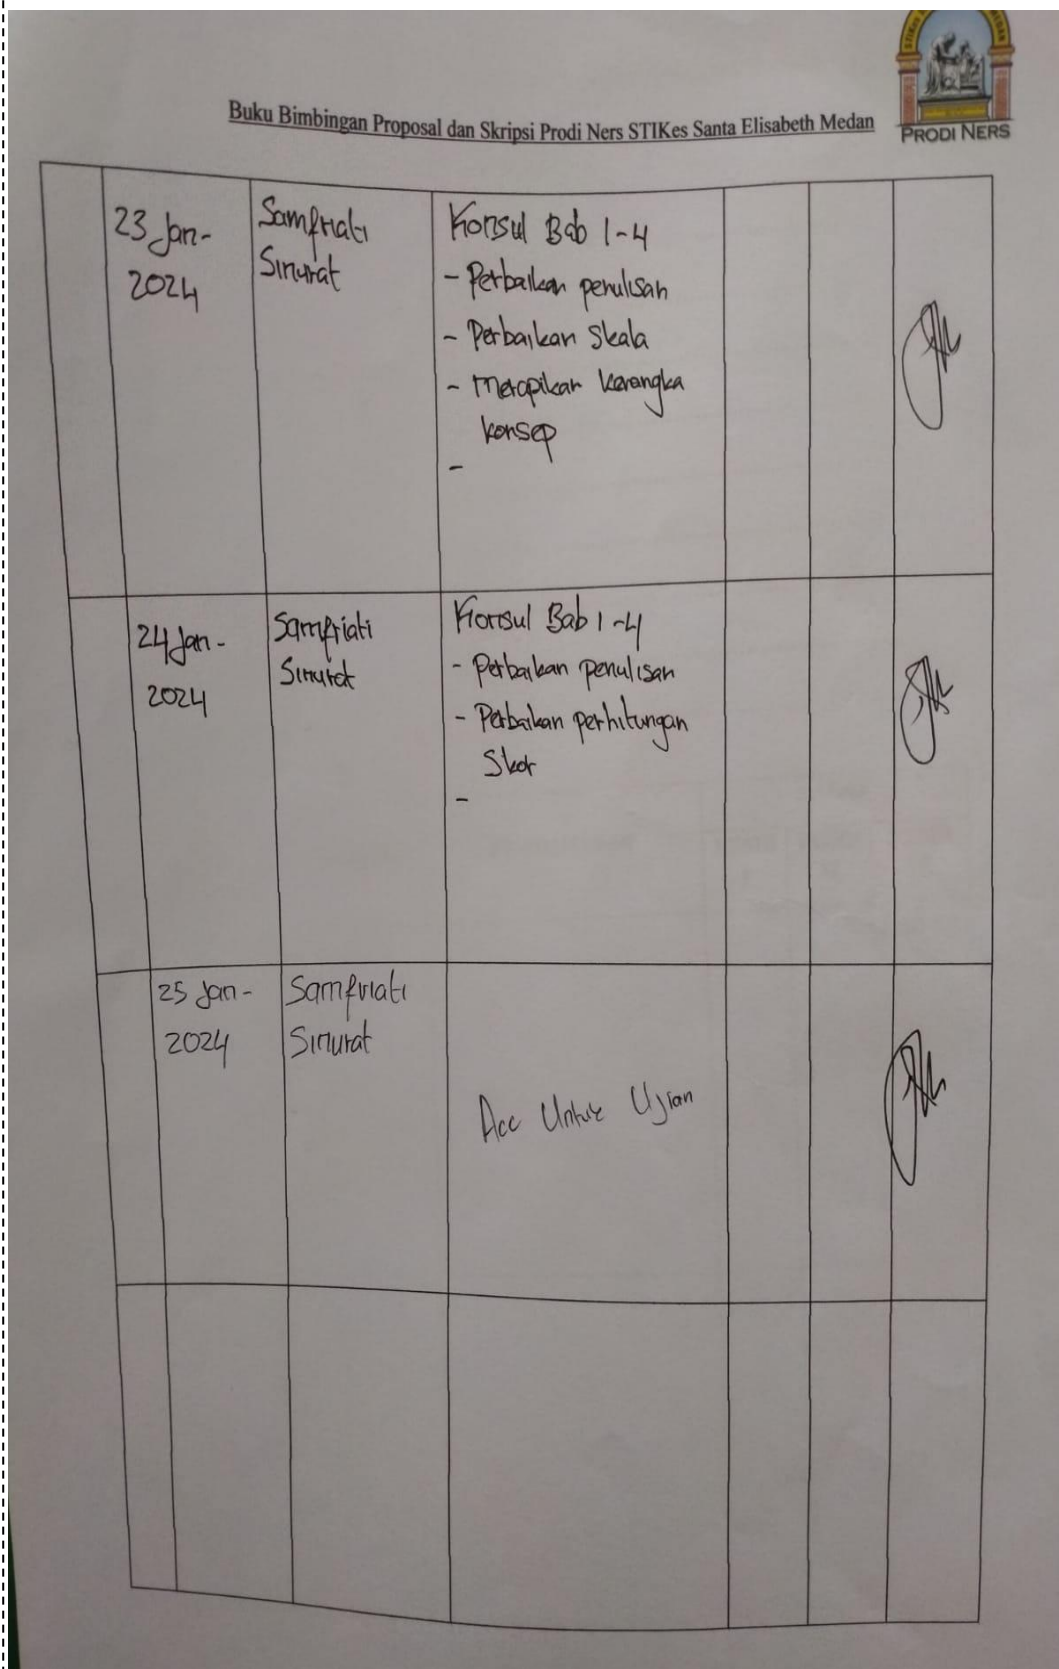 Buku Bimbingan Proposal dan Skripsi Prodi Ners STIKes Santa Elisabeth Medan
PRODI NERS
23 Jan-
2024
Samfriati
Sinurat
Konsul Bab 1-4
- Perbaikan penulisan
- Perbaikan Skala
- Merapikan Kerangka
konsep
-
24 Jan-
2024
Samfriati
Sinurat
Konsul Bab 1-4
- Perbaikan penulisan
- Perbaikan perhitungan
Skor
-
25 Jan-
2024
Samfriati
Sinurat
Acc Untuk Ujian